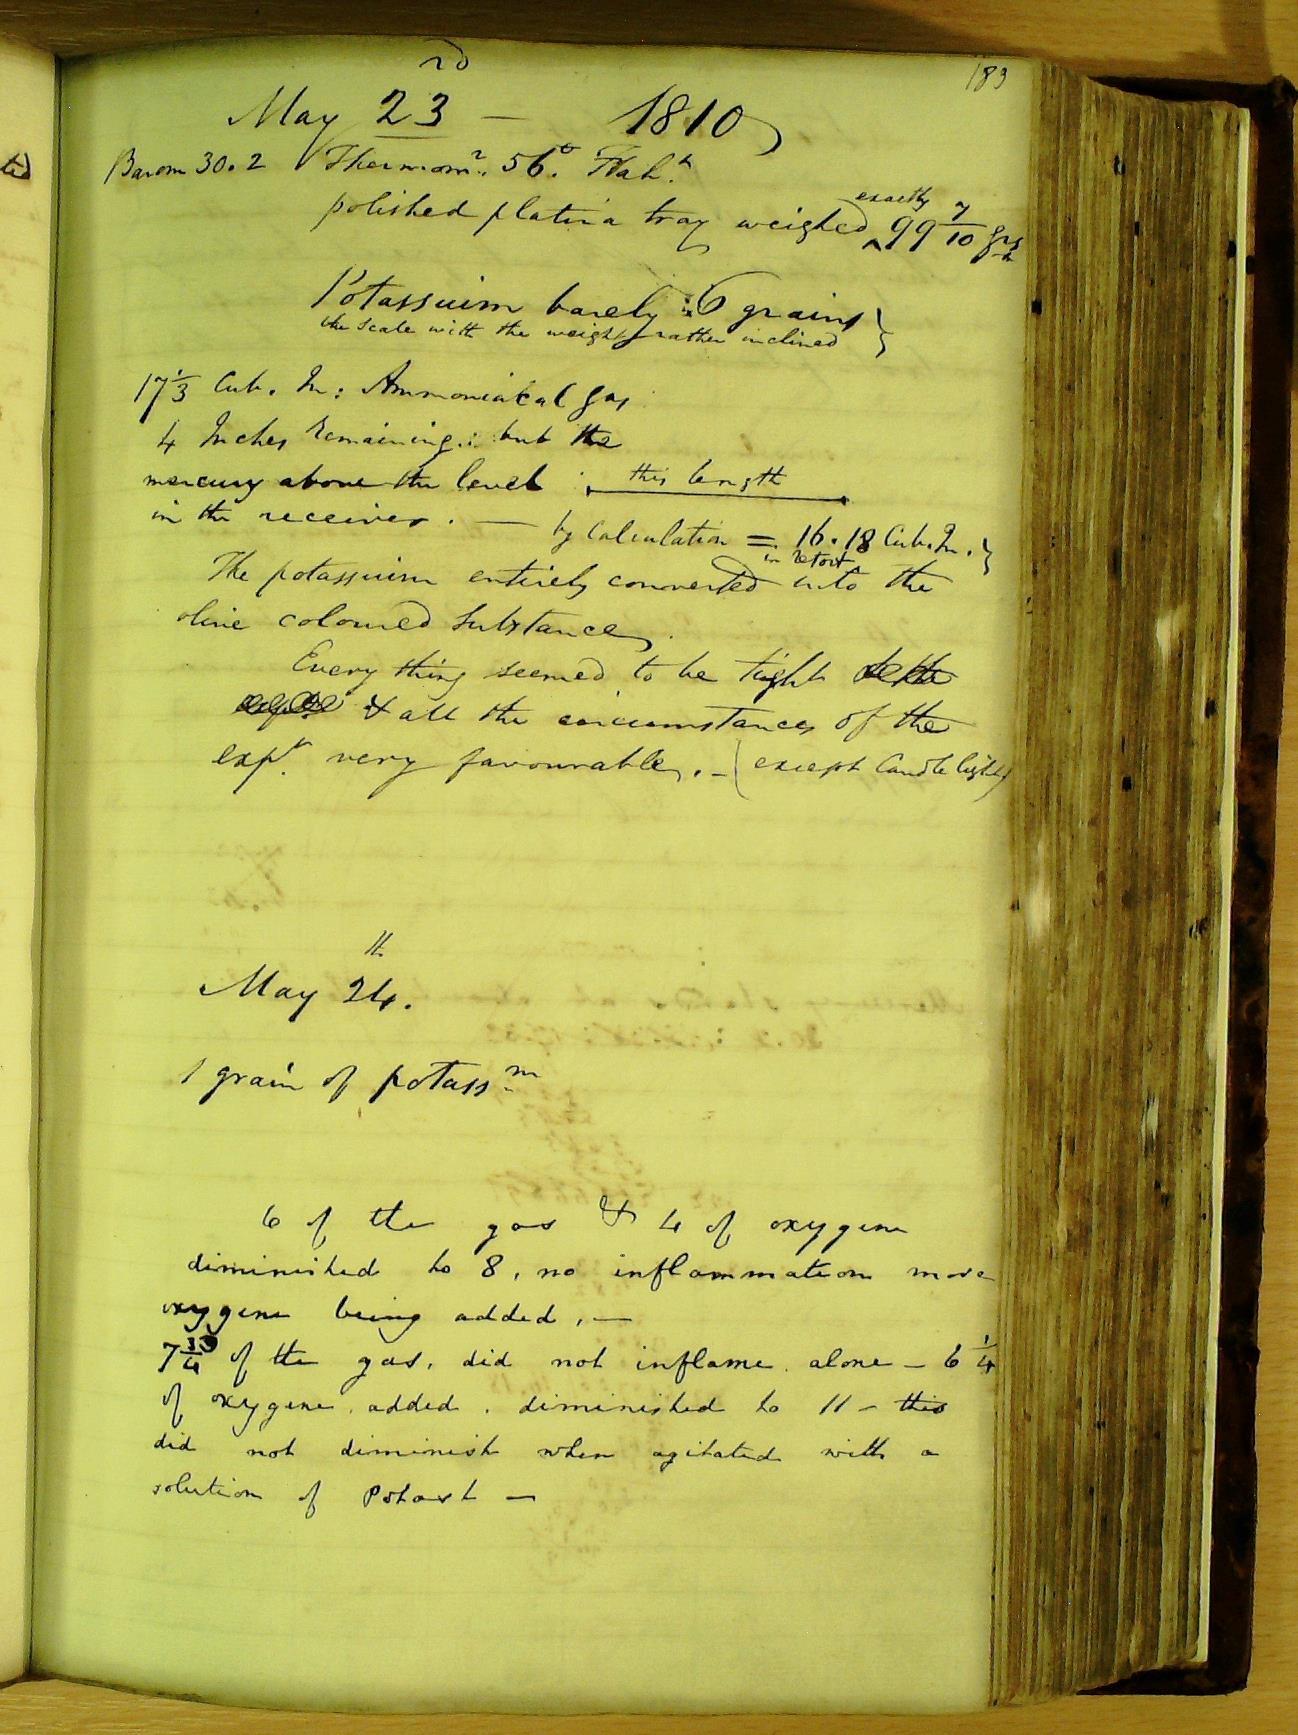 183
May 23rd — 1810
Barom 30.2 Thermomr. 56° Fah.t
polished platina tray weighed exactly 99 7/10 grs
Potassium barely :6 grains }
the scale with the weights rather inclined
17 1/3 Cub. In: Ammoniacal gas
4 Inches remaining: but the
mercury above the level : this length
in the receiver. — by calculation = 16.18 Cub. In. }
The potassium entirely converted in retort into the
olive coloured substance,
Every thing seemed to be tight
& all the circumstances of the
expt. very favourable. – (except Candle light)
May 24th.
1 grain of potassm
6 of the gas & 4 of oxygene
diminished to 8, no inflammation more
oxygene being added, —
7 3/4 of the gas, did not inflame alone – 6 1/4
of oxygene added, diminished to 11 – this
did not diminish when agitated with a
solution of Potash —